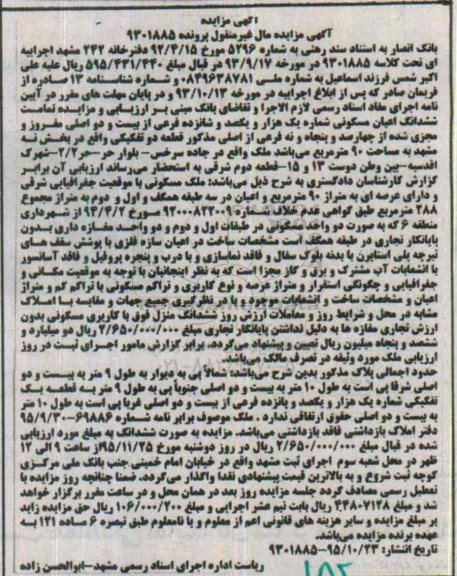 آگهی مزایده
آگهی مزایده مال غیرمنقول پرونده ۹۳۰۱۸۸۵
بانک انصار به استناد سند رهنی به شماره ۵۲۹۶ مورخ ۹۲/۴/۱۵ دفترخانه ۲۴۲ مشهد اجرائیه
ای تحت کلاسه ۹۳۰۱۸۸۵ در مورخه ۹۳/۹/۱۷ در قبال مبلغ ۵۹۵/۴۳۱/۴۴۰ ریال علیه علی
اکبر شمس فرزند اسماعیل به شماره ملی ۰۸۴۹۶۳۸۷۸۱ و شماره شناسنامه ۱۳ صادره از
فریمان صادر که پس از ابلاغ اجراییه در مورخه ۹۳/۱۰/۱۳ و در پایان مهلت های مقرر در آیین
نامه اجرای مفاد اسناد رسمی لازم الاجرا و تقاضای بانک مبنی بر ارزیابی و مزایده تمامت
ششدانگ اعیان مسکونی شماره یک هزار و یکصد و شانزده فرعی از بیست و دو اصلی مفروز و
مجزی شده از چهارصد و پنجاه و نه فرعی از اصلی مذکور قطعه دو تفکیکی واقع در بخش نه
مشهد به مساحت ۹۰ مترمربع می‌باشد ملک واقع در جاده سرخس- بلوار حر-حر۲/۲-شهرک
اقدسیه-بین وطن دوست ۱۳ و ۱۵-قطعه دوم شرقی به استحضار می‌رساند ارزیابی آن برابر
گزارش کارشناسان دادگستری به شرح ذیل می‌باشد: ملک مسکونی با موقعیت جغرافیایی شرقی
و دارای عرصه ای به متراژ ۹۰ مترمربع و اعیان در سه طبقه همکف و اول و دوم به متراژ مجموع
۲۸۸ مترمربع طبق گواهی عدم خلاف شماره ۹۲۰۰۰۸۲۲۰۰۹ مورخ ۹۴/۴/۲ از شهرداری
منطقه ۶ که به صورت دو واحد مسکونی در طبقات اول و دوم و دو واحد مغازه داری بدون
پایانکار تجاری در طبقه همکف است مشخصات ساخت در اعیان سازه فلزی با پوشش سقف های
تیرچه پلی استایرن با بدنه بلوک سفال و فاقد نماسازی و با درب و پنجره پروفیل و فاقد آسانسور
با انشعابات آب مشترک و برق و گاز مجزا است که به نظر اینجانبان با توجه به موقعیت مکانی و
جغرافیایی و چگونگی استقرار و متراژ عرصه و نوع کاربری و تراکم مسکونی با تراکم کم و متراژ
اعیان و مشخصات ساخت و انشعابات موجود و با در نظرگیری جمیع جهات و مقایسه با املاک
مشابه در محل و شرایط روز و معاملات ارزش روز ششدانگ منزل فوق با کاربری مسکونی بدون
ارزش تجاری مغازه ها به دلیل نداشتن پایانکار تجاری مبلغ ۲/۶۵۰/۰۰۰/۰۰۰ ریال دو میلیارد و
ششصد و پنجاه میلیون ریال تعیین و پیشنهاد می‌گردد. برابر گزارش مامور اجرای ثبت در روز
ارزیابی ملک مورد وثیقه در تصرف مالک می‌باشد.
حدود اجمالی پلاک مذکور بدین شرح می‌باشد: شمالاً پی به دیوار به طول ۹ متر به بیست و دو
اصلی شرقا پی است به طول ۱۰ متر به بیست و دو اصلی جنوباً پی به طول ۹ متر به قطعه یک
تفکیکی شماره یک هزار و یکصد و پانزده فرعی از بیست و دو اصلی غربا پی است به طول ۱۰ متر
به بیست و دو اصلی حقوق ارتفاقی ندارد . ملک موصوف برابر نامه شماره ۶۹۸۸۶-۹۵/۹/۳۰
دفتر املاک بازداشتی فاقد بازداشتی می‌باشد. مزایده به صورت ششدانگ به مبلغ مورد ارزیابی
شده در قبال مبلغ ۲/۶۵۰/۰۰۰/۰۰۰ ریال در روز دوشنبه مورخ ۹۵/۱۱/۲۵ از ساعت ۹ الی ۱۲
ظهر در محل شعبه سوم اجرای ثبت مشهد واقع در خیابان امام خمینی جنب بانک ملی مرکزی
کوچه ثبت شروع و به بالاترین قیمت پیشنهادی نقدا واگذار می‌گردد. ضمنا چنانچه روز مزایده با
تعطیل رسمی مصادف گردد جلسه مزایده روز بعد در همان محل و در ساعت مقرر برگزار خواهد
شد و مبلغ ۴۴۸۰۷۱۲۸ ریال بابت نیم عشر اجرایی و مبلغ ۱۰۶/۰۰۰/۲۰۰ ریال حق مزایده زاید
بر مبلغ مزایده و سایر هزینه های قانونی اعم از معلوم و یا نامعلوم طبق تبصره ۶ ماده ۱۲۱ به
عهده برنده مزایده می‌باشد.
تاریخ انتشار: ۹۵/۱۰/۲۳-۹۳۰۱۸۸۵
ریاست اداره اجرای اسناد رسمی مشهد-ابوالحسن زاده